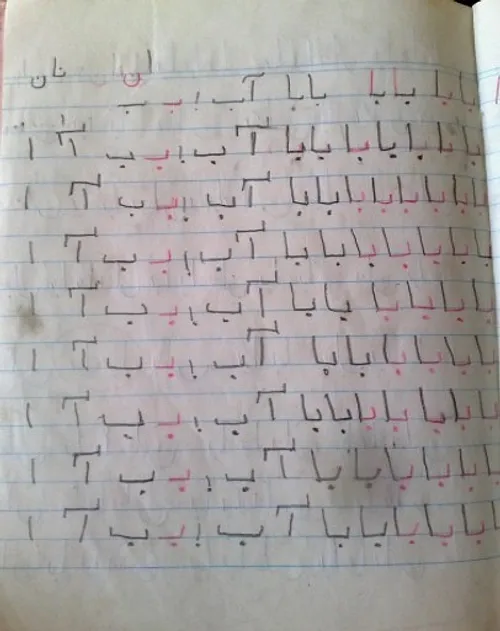 نان
با با با با با با آ ب ب ب
با با با با با با با آ ب ب ب آ ا
با با با با با با با آ ب ب ب آ ا
با با با با با با با آ ب ب ب آ ا
با با با با با با آ ب ب ب آ ا
با با با با با با آ ب ب ب آ ا
با با با با با با با آ ب ب ب آ ا
با با با با با با آ ب ب ب آ ا
با با با با با با آ ب ب ب آ ا